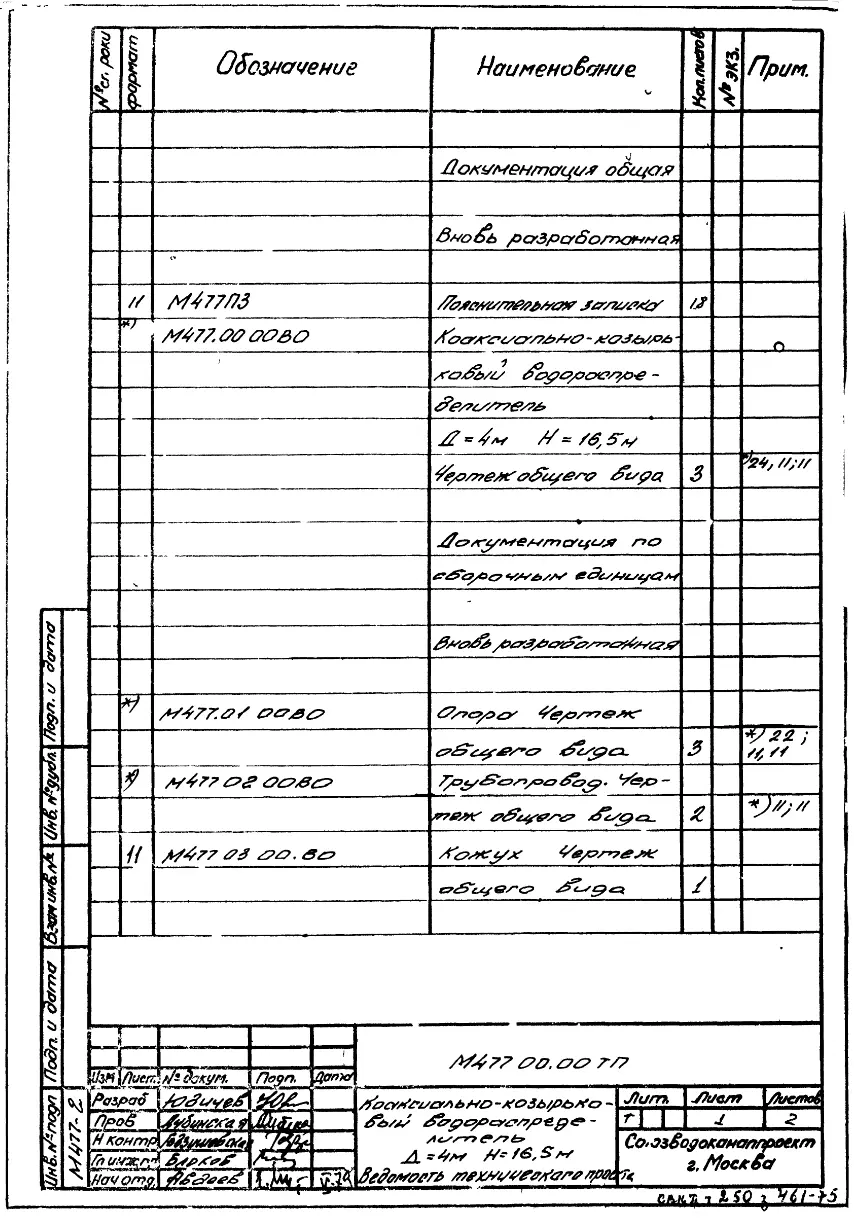 № строки формат Обозначение Наименование Кол.листов № экз. Прим.
Документация общая
Вновь разработанная
11 М477ПЗ Пояснительная записка 18
*) М477.00 00ВО Коаксиально-козырь-
ковый водораспре-
делитель
Д=4м Н=16,5м
Чертеж общего вида 3 *)24, 11; 11
Документация по
сборочным единицам
Вновь разработанная
*) М477.01 00ВО Опора Чертеж
общего вида 3 *) 22;
11, 11
*) М477 02 00ВО Трубопровод. Чер-
теж общего вида 2 *) 11; 11
11 М477 03 00.ВО Кожух Чертеж
общего вида 1
Подп. и дата
Инв. № дубл.
Взам инв. №
Подп. и дата
Инв. № подл
М477-2
М477 00.00 ТП
Изм Лист № докум. Подп. Дата
Разраб Юдичев
Пров Лубинская
Н контр
Гл инж.пр Барков
Нач отд. Авдеев
Коаксиально-козырько-
вый водораспреде-
литель
Д=4м Н=16,5м
Ведомость технического проекта
Лит. Лист Листов
Т 1 2
Союзводоканалпроект
г. Москва